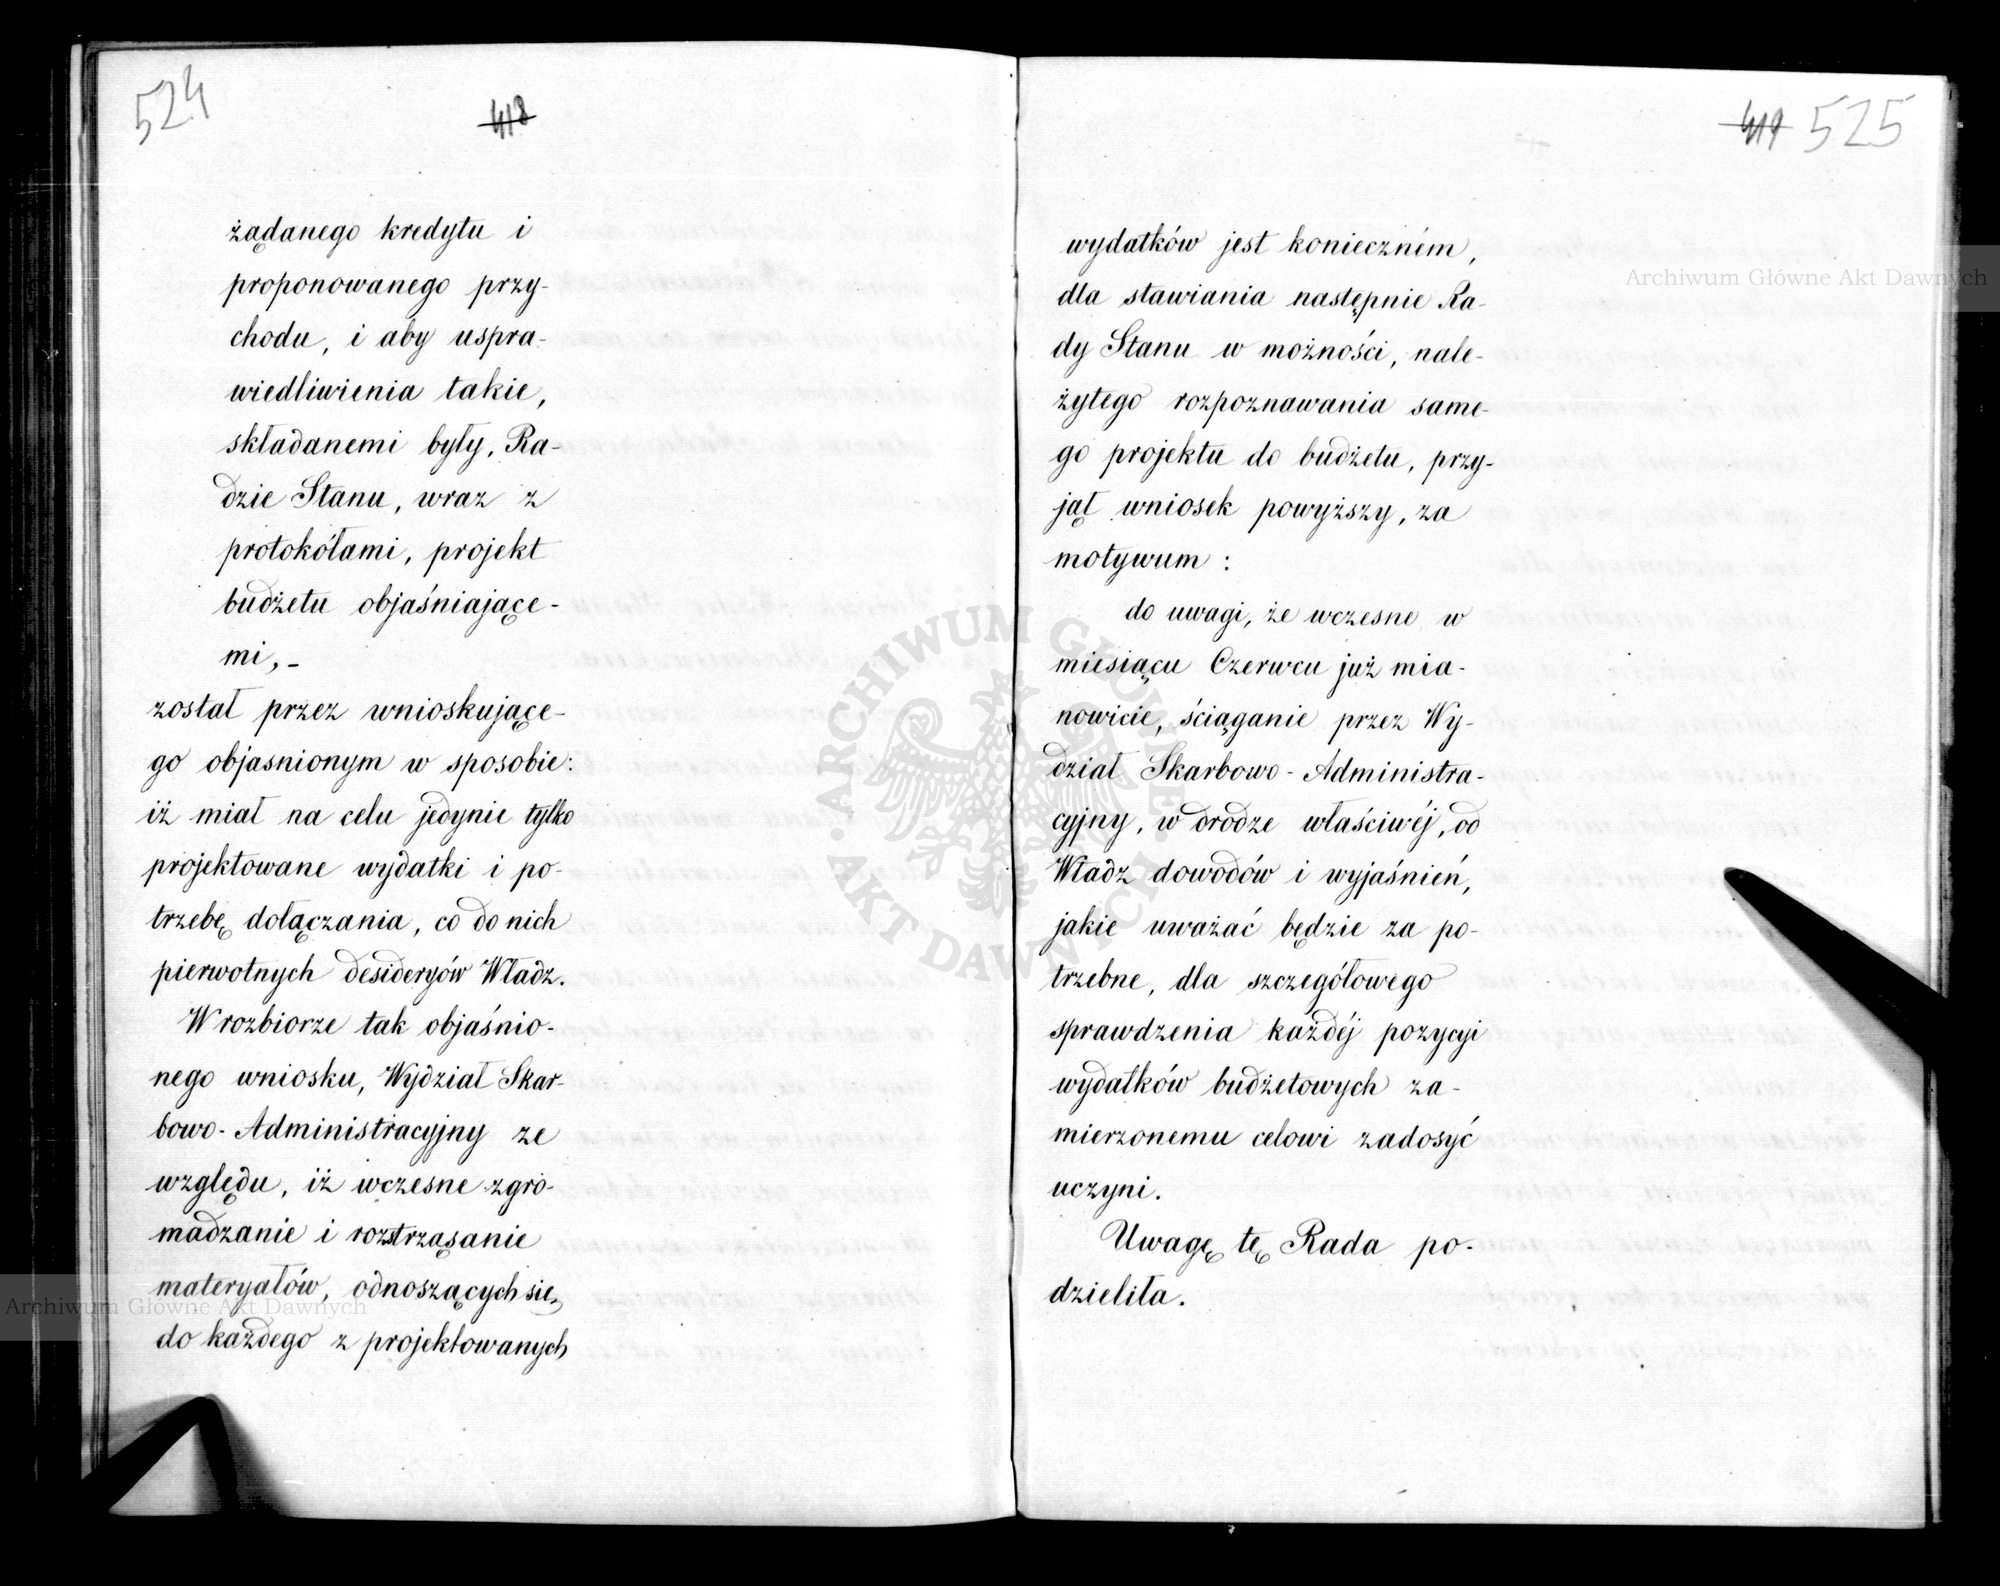 524
418
żądanego kredytu i
proponowanego przy-
chodu, i aby uspra-
wiedliwienia takie,
składanemi były, Ra-
dzie Stanu, wraz z
protokółami, projekt
budżetu objaśniające-
mi,_
został przez wnioskujące-
go objasnionym w sposobie:
iż miał na celu jedynie tylko
projektowane wydatki i po-
trzebę dołączania, co do nich
pierwotnych desideryów Władz.
W rozbiorze tak objaśnio-
nego wniosku, Wydział Skar-
bowo-Administracyjny ze
względu, iż wczesne zgro-
madzanie i rozstrząsanie
materyałów, odnoszących się,
do każdego z projektowanych
419 525
wydatków jest konieczném,
dla stawiania następnie Ra-
dy Stanu w możności, nale-
żytego rozpoznawania same-
go projektu do budżetu, przy-
jął wniosek powyższy, za
motywum:
do uwagi, że wczesne w
miesiącu Czerwcu już mia-
nowicie, ściąganie przez Wy-
dział Skarbowo-Administra-
cyjny, w drodze właściwéj, od
Władz dowodów i wyjaśnień,
jakie uważać będzie za po-
trzebne, dla szczegółowego
sprawdzenia każdéj pozycyi
wydatków budżetowych za-
mierzonemu celowi zadosyć
uczyni.
Uwagę tę Rada po-
dzieliła.
Archiwum Główne Akt Dawnych
Archiwum Główne Akt Dawnych
ARCHIWUM GŁÓWNE AKT DAWNYCH